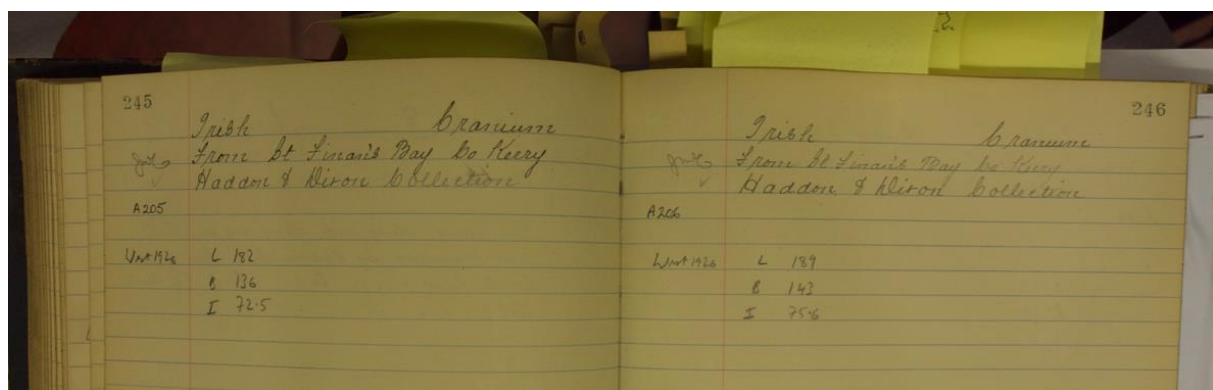 245
Irish Cranium
From St Finan's Bay Co Kerry
Haddon & Dixon Collection
A205
L 182
B 136
I 72.5
246
Irish Cranium
From St Finan's Bay Co Kerry
Haddon & Dixon Collection
A206
L 189
B 143
I 75.6